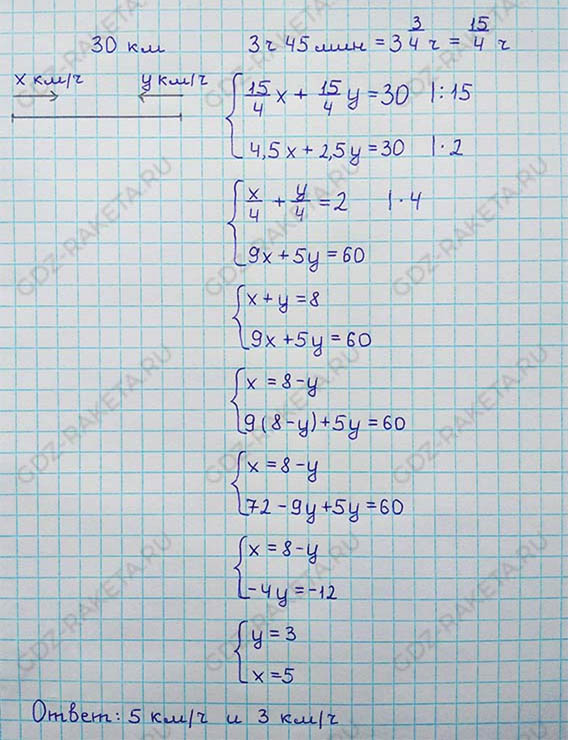 30 км 3 ч 45 мин = 3 3/4 ч = 15/4 ч
x км/ч y км/ч
15/4 x + 15/4 y = 30 |: 15
4,5x + 2,5y = 30 | · 2
x/4 + y/4 = 2 | · 4
9x + 5y = 60
x + y = 8
9x + 5y = 60
x = 8 - y
9(8 - y) + 5y = 60
x = 8 - y
72 - 9y + 5y = 60
x = 8 - y
-4y = -12
y = 3
x = 5
Ответ: 5 км/ч и 3 км/ч
GDZ-RAKETA.RU